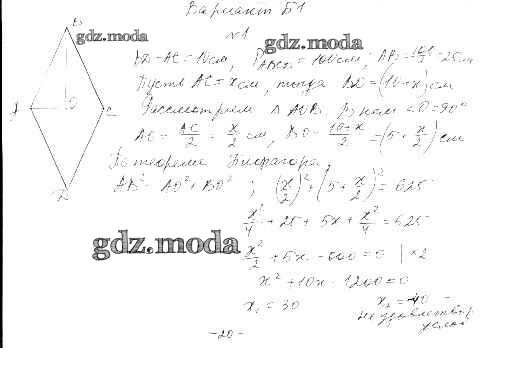 Вариант Б1
№1
B
gdz.moda
gdz.moda
BD-AC=10см, P_ABCD=100см; AB=100/4=25см
Пусть AC=x см, тогда BD=(10+x)см
A O C
Рассмотрим △AOB, в нем <O=90°
AO=AC/2=x/2 см, BO=(10+x)/2=(5+x/2)см
По теореме Пифагора,
AB²=AO²+BO²; (x/2)²+(5+x/2)²=625
D
x²/4+25+5x+x²/4=625
gdz.moda
x²/2+5x-600=0 | ×2
x²+10x-1200=0
x₁=30 x₂=-40 -
не удовлетвор.
услов
-20-